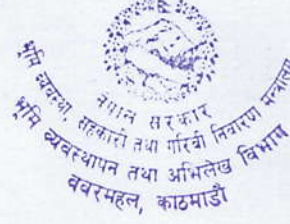 नेपाल सरकार
भूमि व्यवस्था, सहकारी तथा गरिबी निवारण मन्त्रालय
भूमि व्यवस्थापन तथा अभिलेख विभाग
ववरमहल, काठमाडौ